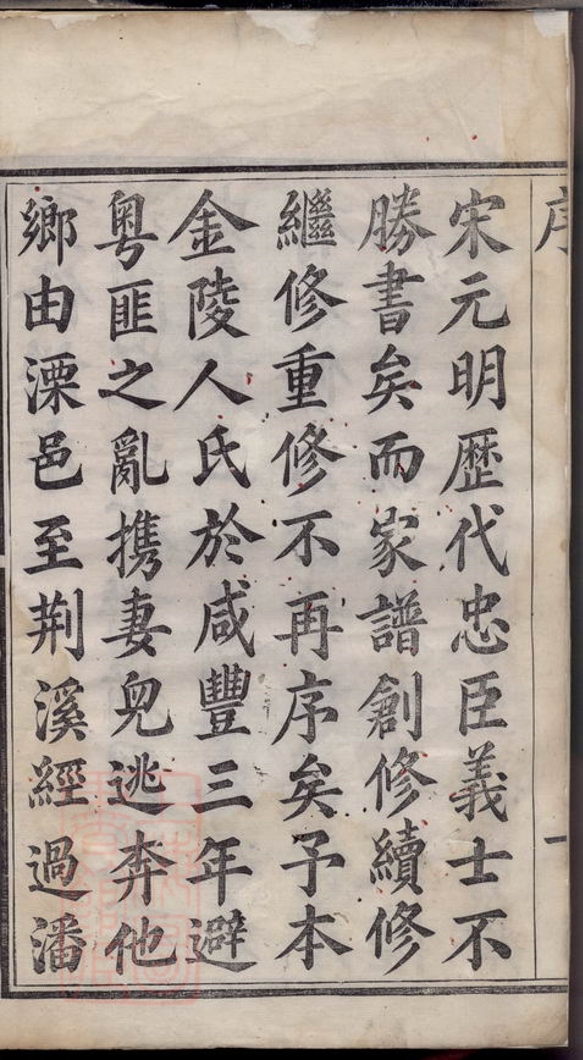 序
一
宋元明歷代忠臣義士不
勝書矣而家譜創修續修
繼修重修不再序矣予本
金陵人氏於咸豐三年避
粵匪之亂携妻兒逃奔他
鄉由溧邑至荆溪經過潘